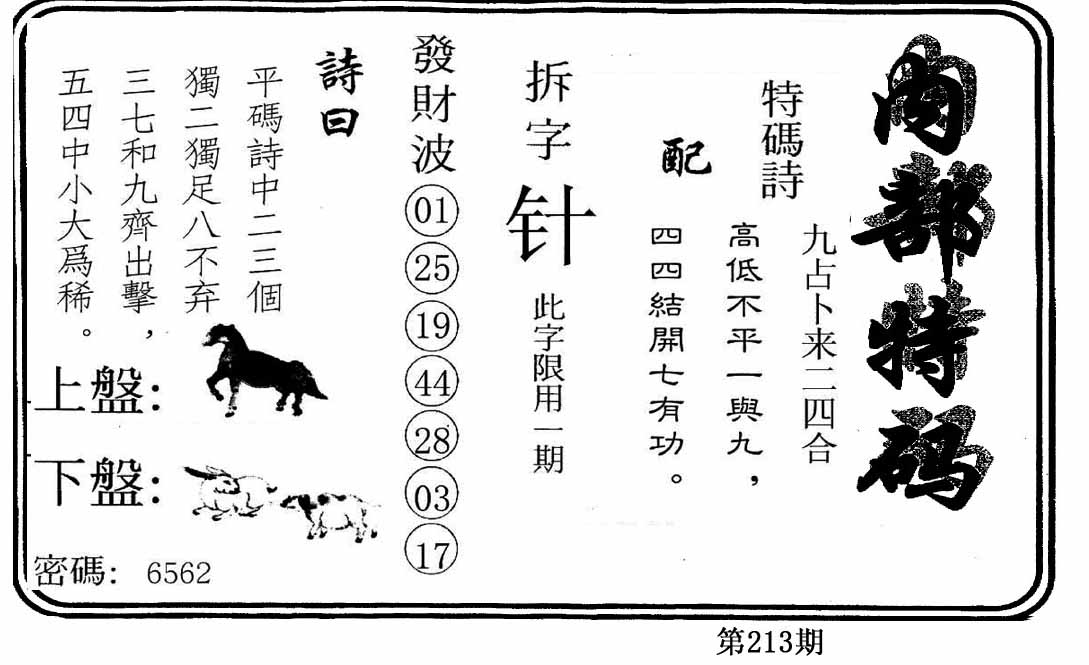 内部特码
九占卜来二四合
特碼詩
高低不平一與九，
配
四四結開七有功。
拆字
针
此字限用一期
發財波
01
25
19
44
28
03
17
詩曰
平碼詩中二三個
獨二獨足八不弃
三七和九齊出擊，
五四中小大爲稀。
上盤：
下盤：
密碼：6562
第213期